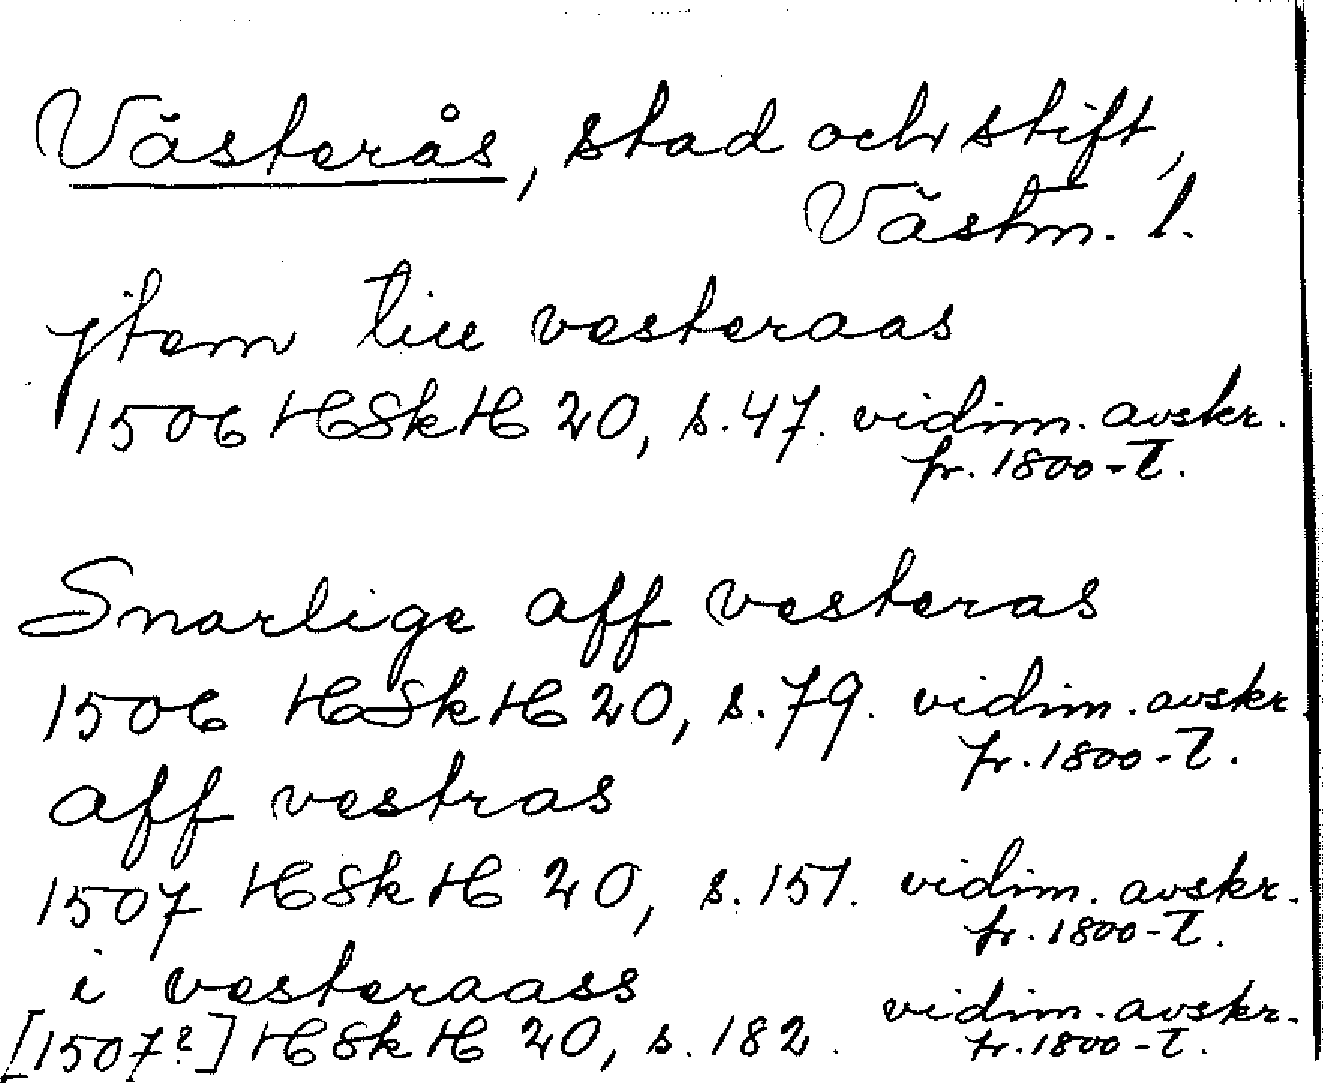 Västerås, stad och stift,
Västm. l.
jtem till vesteraas
1506 HSkH 20, s. 47. vidim. avskr.
fr. 1800-t.
Snarlige aff vesteras
1506 HSkH 20, s. 79. vidim. avskr.
fr. 1800-t.
aff vestras
1507 HSkH 20, s. 151. vidim. avskr.
fr. 1800-t.
i vesteraass
[1507?] HSkH 20, s. 182. vidim. avskr.
fr. 1800-t.